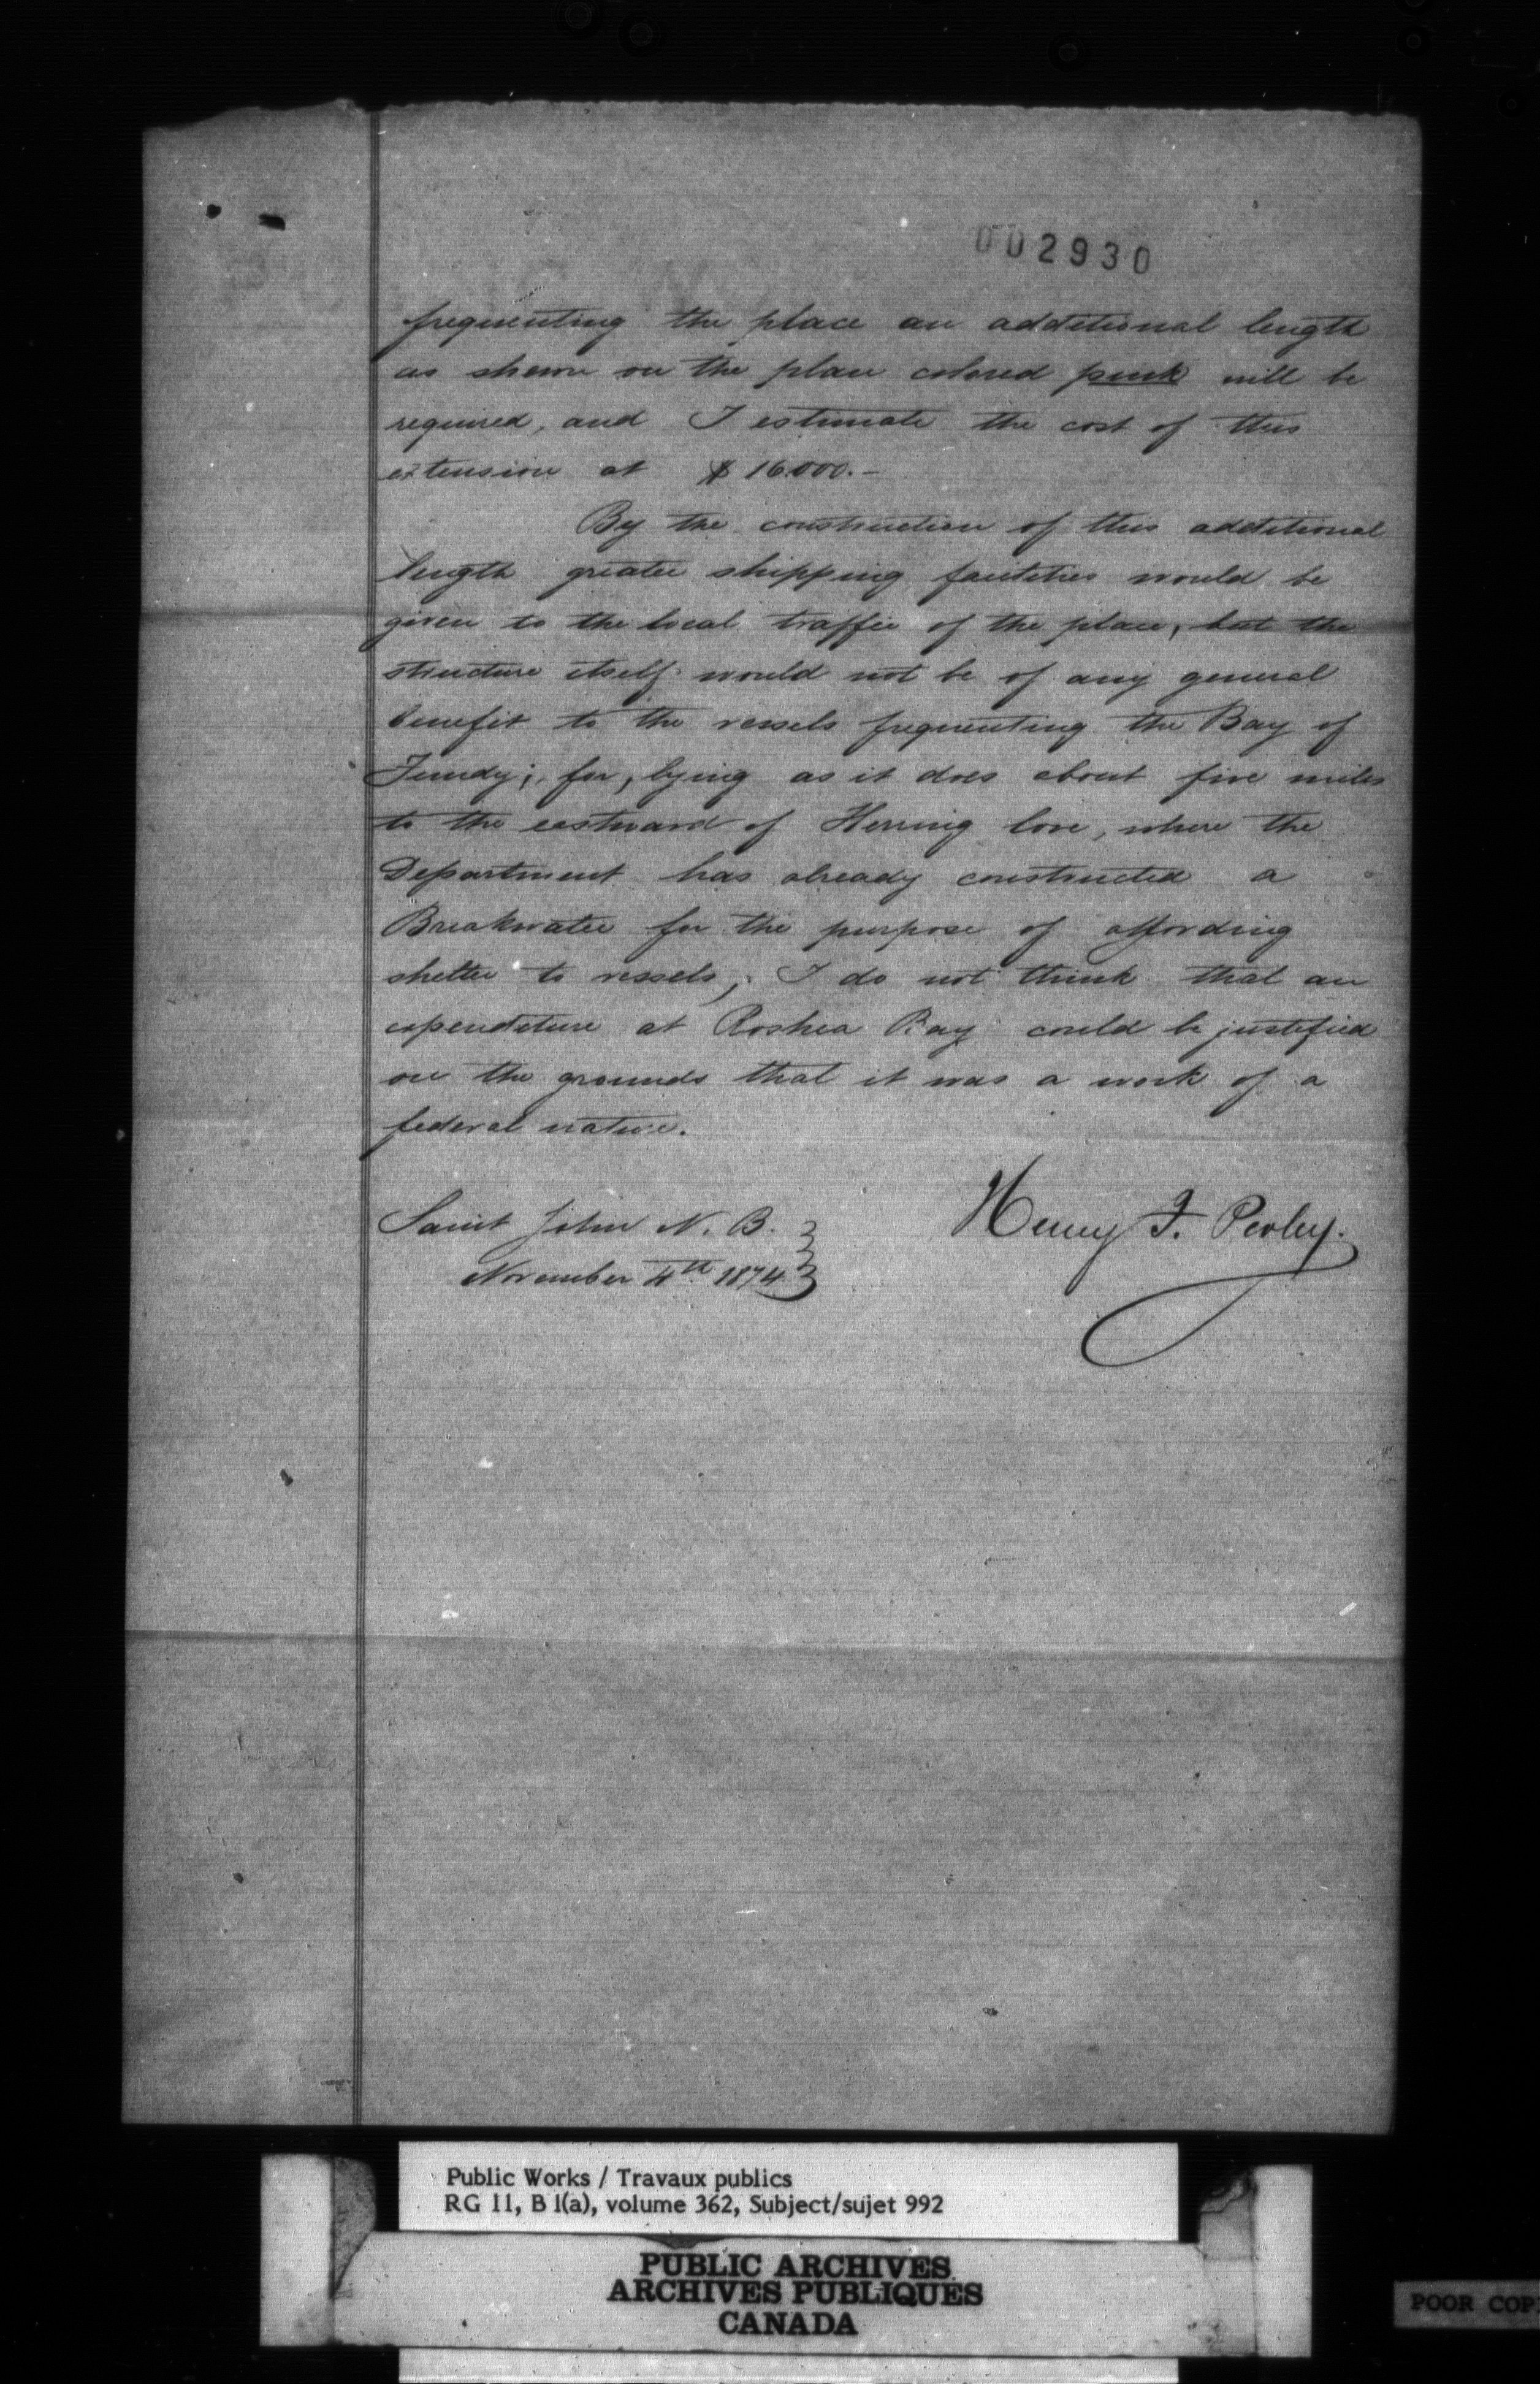 002930
frequenting the place an additional length
as shewn on the plan colored pink will be
required, and I estimate the cost of this
extension at $16.000.-
By the construction of this additional
length greater shipping facilities would be
given to the local traffic of the place, but the
structure itself would not be of any general
benefit to the vessels frequenting the Bay of
Fundy; for, lying as it does about five miles
to the eastward of Herring Cove, where the
Department has already constructed a
Breakwater for the purpose of affording
shelter to vessels, I do not think that an
expenditure at Roshea Bay could be justified
on the grounds that it was a work of a
federal nature.
Saint John N. B.
November 4th 1874
Henry F. Perley.
Public Works / Travaux publics
RG 11, B 1(a), volume 362, Subject/sujet 992
PUBLIC ARCHIVES
ARCHIVES PUBLIQUES
CANADA
POOR COP